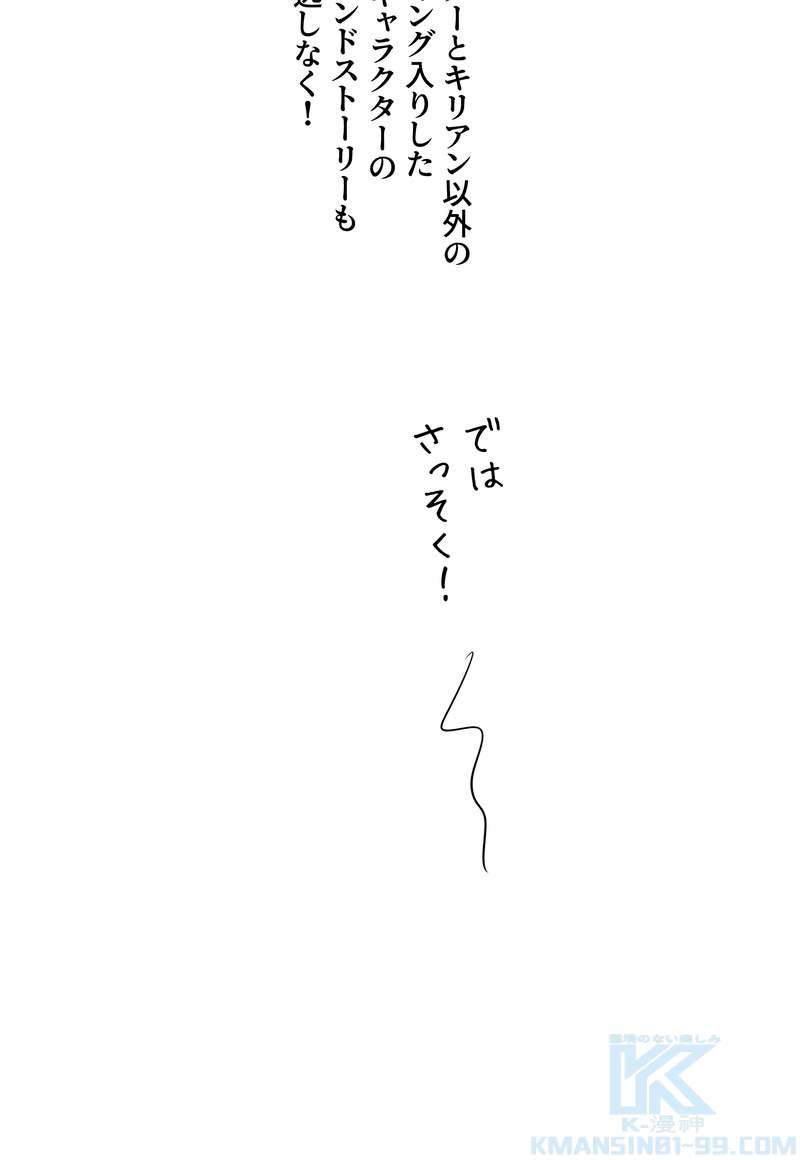 ーとキリアン以外の
ング入りした
キャラクターの
ンドストーリーも
逃しなく！
では
さっそく！
K-漫神
KMANSIN01-99.COM